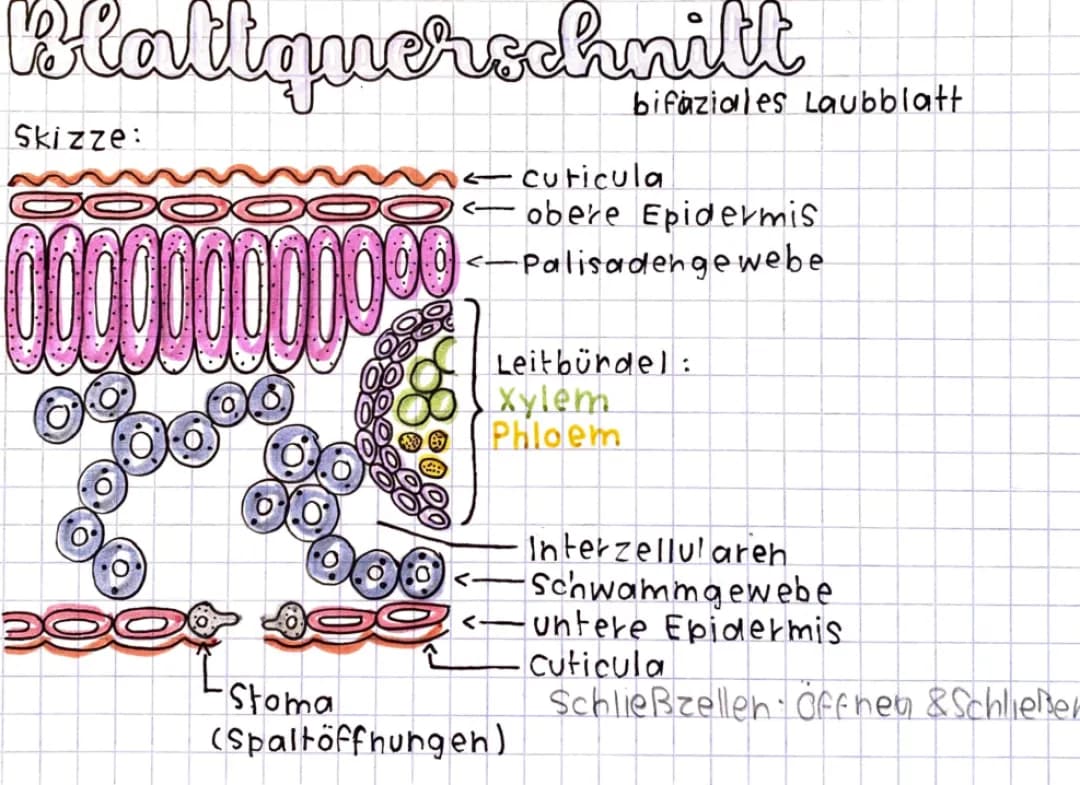 Blattquerschnitt
bifaziales Laubblatt
Skizze:
Cuticula
obere Epidermis
Palisadengewebe
Leitbündel:
Xylem
Phloem
Interzellularen
Schwammgewebe
untere Epidermis
Cuticula
Stoma
(Spaltöffnungen)
Schließzellen: Öffnen & Schließen